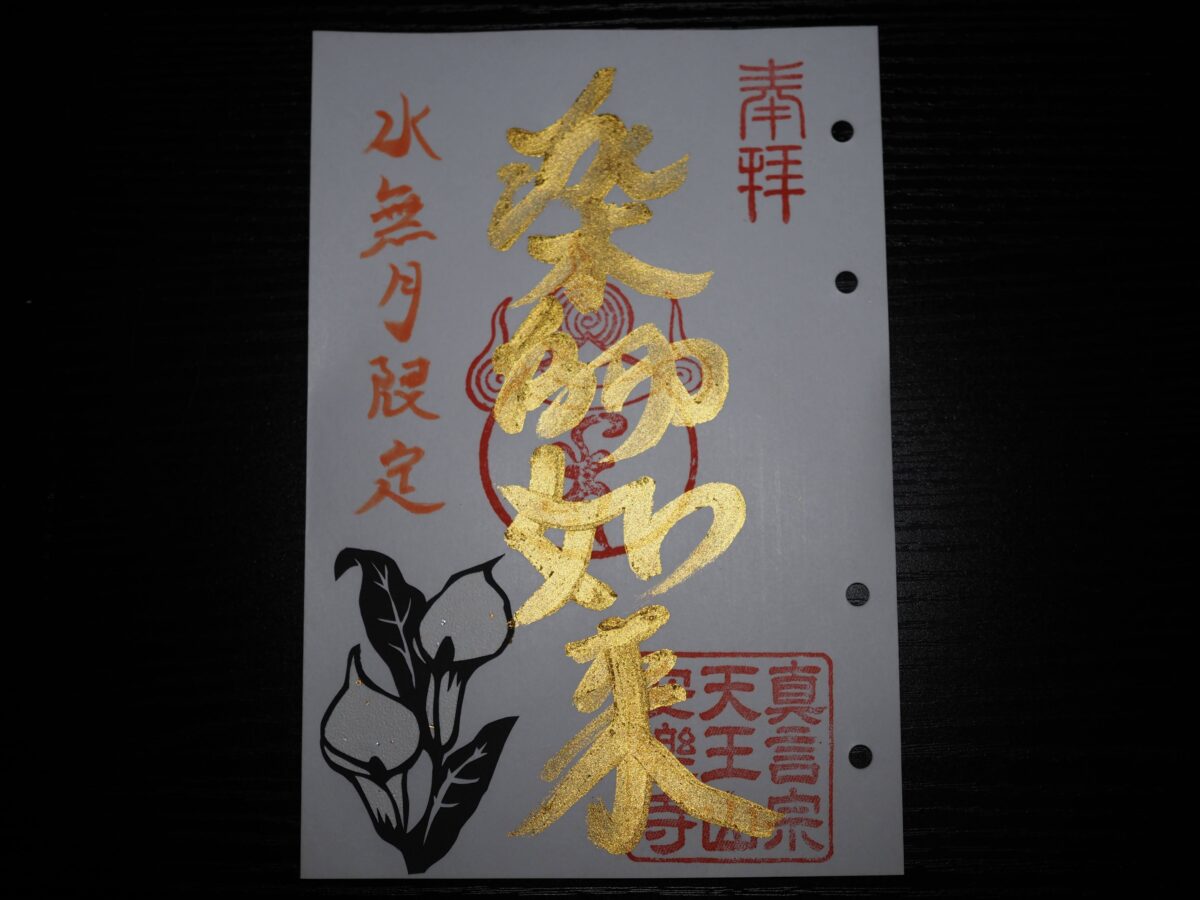 奉拝
薬師如来
水無月限定
真言宗
天王山
安樂寺